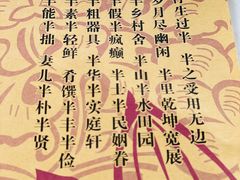 生过半 半之受用无边
岁月尽幽闲 半里乾坤宽展
半乡村舍 半山半水田园
半假半疯癫 半士半民姻眷
半粗器具 半华半实庭轩
半素半轻鲜 肴馔半丰半俭
半能半拙 妻儿半朴半贤